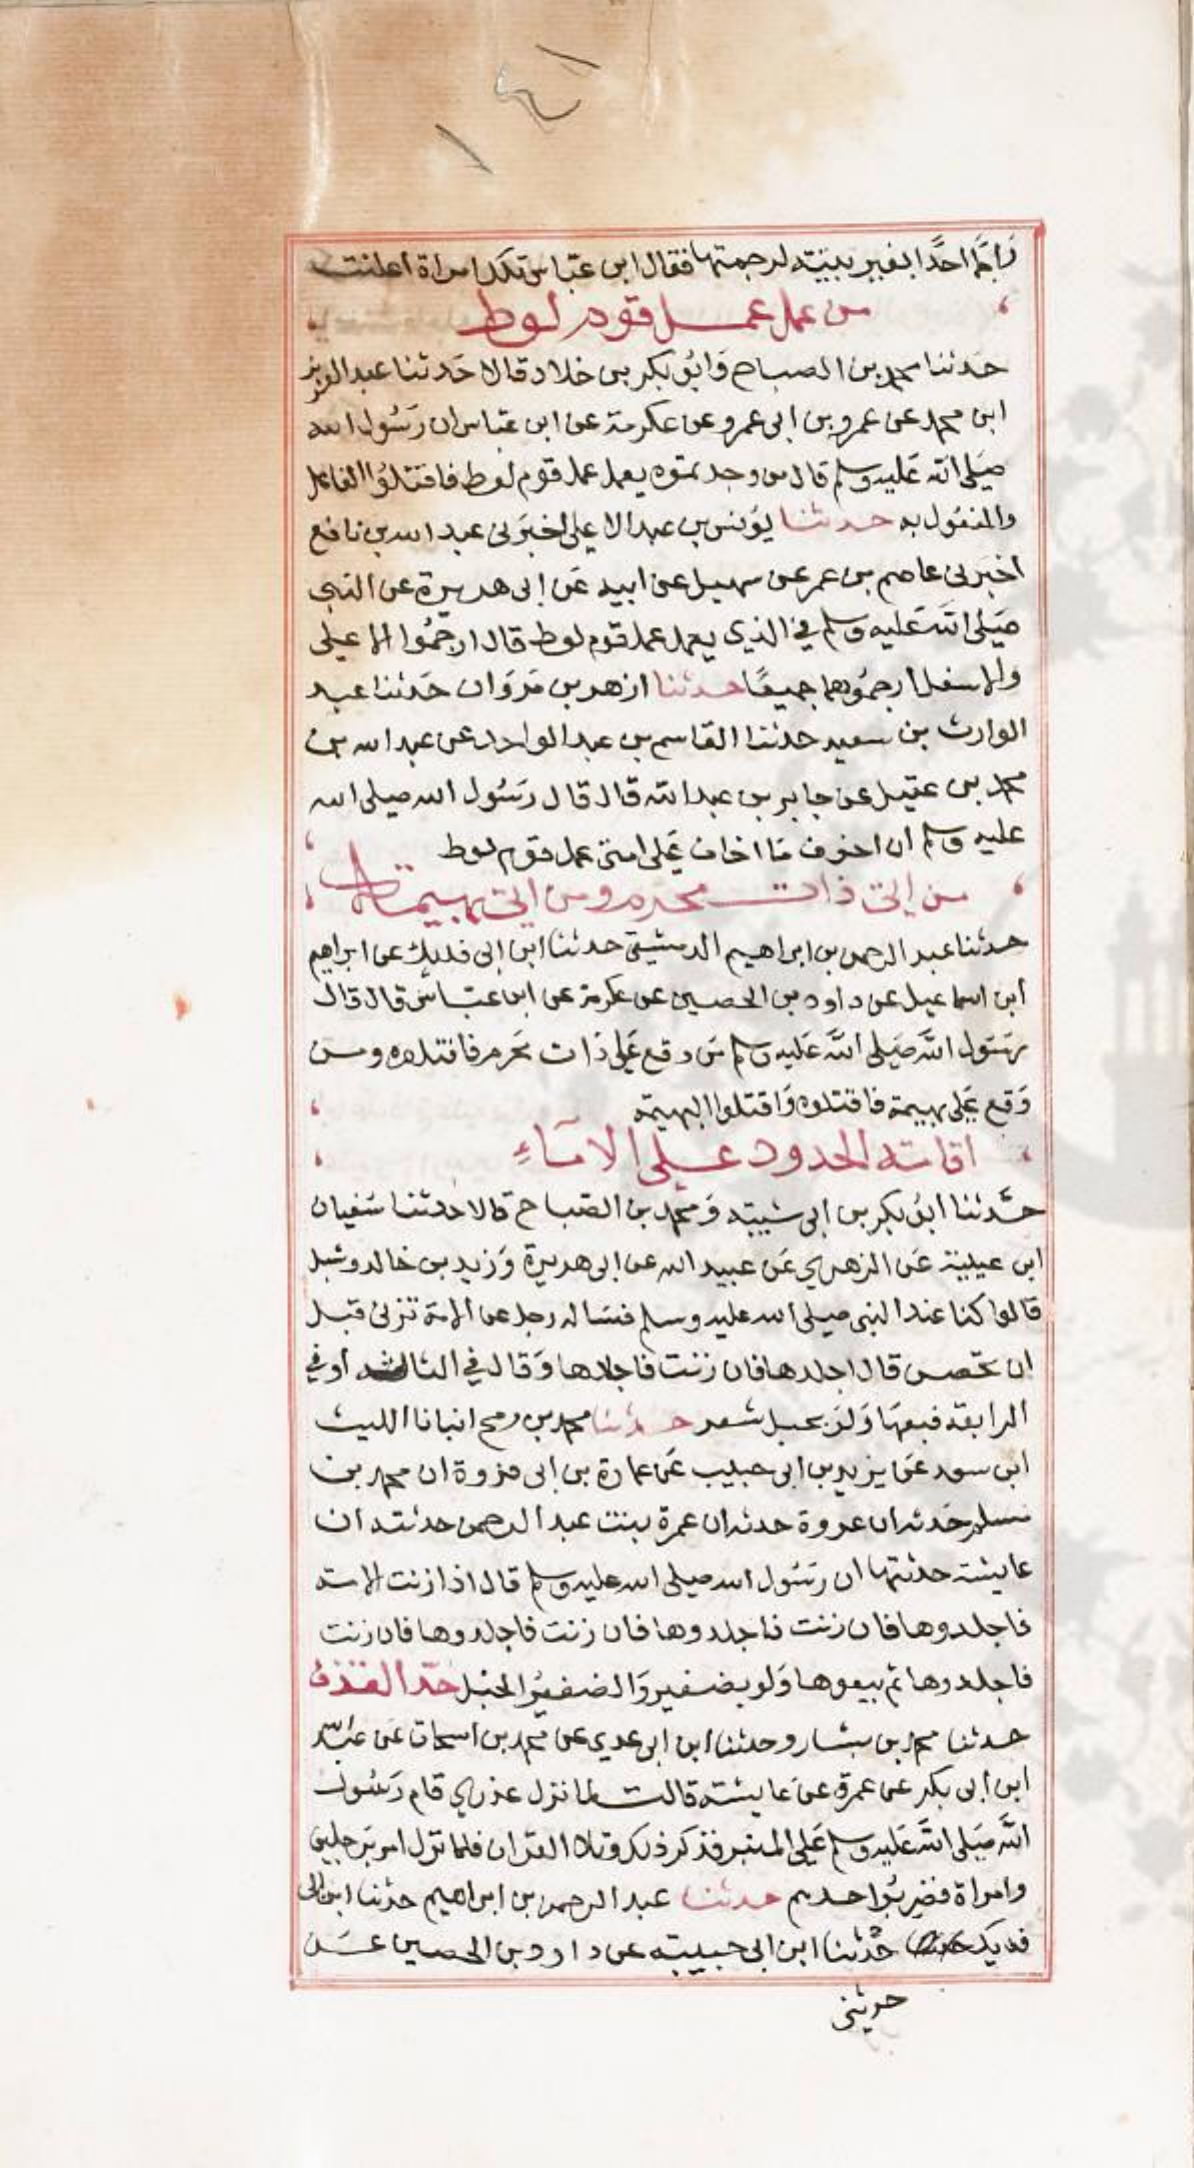 راجما احدا بغير بينة لرجمتها فقال ابن عباس تلك امراة اعلنت
من عمل عمل قوم لوط
حدثنا محمد بن الصباح وابو بكر بن خلاد قالا حدثنا عبد العزيز
ابن محمد عن عمرو بن ابي عمرو عن عكرمة عن ابن عباس ان رسول الله
صلى الله عليه وسلم قال من وجدتموه يعمل عمل قوم لوط فاقتلوا الفاعل
والمفعول به حدثنا يونس بن عبد الاعلى اخبرني عبد الله بن نافع
اخبرني عاصم بن عمر عن سهيل عن ابيه عن ابي هريرة عن النبي
صلى الله عليه وسلم في الذي يعمل عمل قوم لوط قال ارجموا الاعلى
والاسفل ارجموهما جميعا حدثنا ازهر بن مروان حدثنا عبد
الوارث بن سعيد حدثنا القاسم بن عبد الواحد عن عبد الله بن
محمد بن عقيل عن جابر بن عبد الله قال قال رسول الله صلى الله
عليه وسلم ان اخوف ما اخاف على امتي عمل قوم لوط
من اتى ذات محرم ومن اتى بهيمة
حدثنا عبد الرحمن بن ابراهيم الدمشقي حدثنا ابن ابي فديك عن ابراهيم
ابن اسماعيل عن داود بن الحصين عن عكرمة عن ابن عباس قال قال
رسول الله صلى الله عليه وسلم من وقع على ذات محرم فاقتلوه ومن
وقع على بهيمة فاقتلوه واقتلوا البهيمة
اقامة الحدود على الاماء
حدثنا ابو بكر بن ابي شيبة ومحمد بن الصباح قالا حدثنا سفيان
ابن عيينة عن الزهري عن عبيد الله عن ابي هريرة وزيد بن خالد وشبل
قالوا كنا عند النبي صلى الله عليه وسلم فساله رجل عن الامة تزني قبل
ان تحصن قال اجلدها فان زنت فاجلدها وقال في الثالثة او في
الرابعة فبعها ولو بحبل شعر حدثنا محمد بن رمح انبانا الليث
ابن سعد عن يزيد بن ابي حبيب عن عمارة بن ابي فروة ان محمد بن
مسلم حدثه ان عروة حدثه ان عمرة بنت عبد الرحمن حدثته ان
عايشة حدثتها ان رسول الله صلى الله عليه وسلم قال اذا زنت الامة
فاجلدوها فان زنت فاجلدوها فان زنت فاجلدوها فان زنت
فاجلدوها ثم بيعوها ولو بضفير والضفير الحبل حد القذف
حدثنا محمد بن بشار وحدثنا ابن ابي عدي عن محمد بن اسحاق عن عبد الله
ابن ابي بكر عن عمرة عن عايشة قالت لما نزل عذري قام رسول
الله صلى الله عليه وسلم على المنبر فذكر ذلك وتلا القران فلما نزل امر برجلين
وامراة فضربوا حدهم حدثنا عبد الرحمن بن ابراهيم حدثنا ابن ابي
فديك حدثنا ابن ابي حبيبة عن داود بن الحصين عن
حدثني